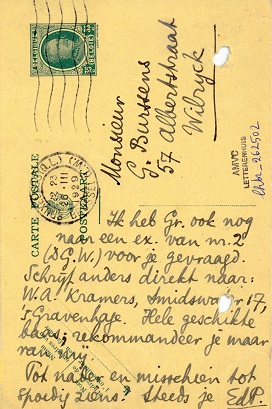 BELGIQUE
BELGIË
CARTE POSTALE
POSTKAART
26 III
1929
Monsieur
G. Burssens
57 Albertstraat
Wilryck
AMVC
LETTERENHUIS
Ik heb Gr. ook nog
naar een ex. van nr. 2
(D.G.W.) voor je gevraagd.
Schrijf anders direkt naar:
W.A. Kramers, 17,
's Gravenhage. Hele geschikte
baas; rekommandeer je maar
van my.
Tot nader en misschien tot
spoedig ziens! Steeds je EdP.